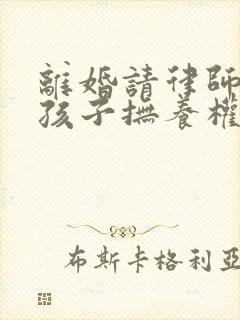 離婚請律師
孩子撫養權
布斯卡格利亞